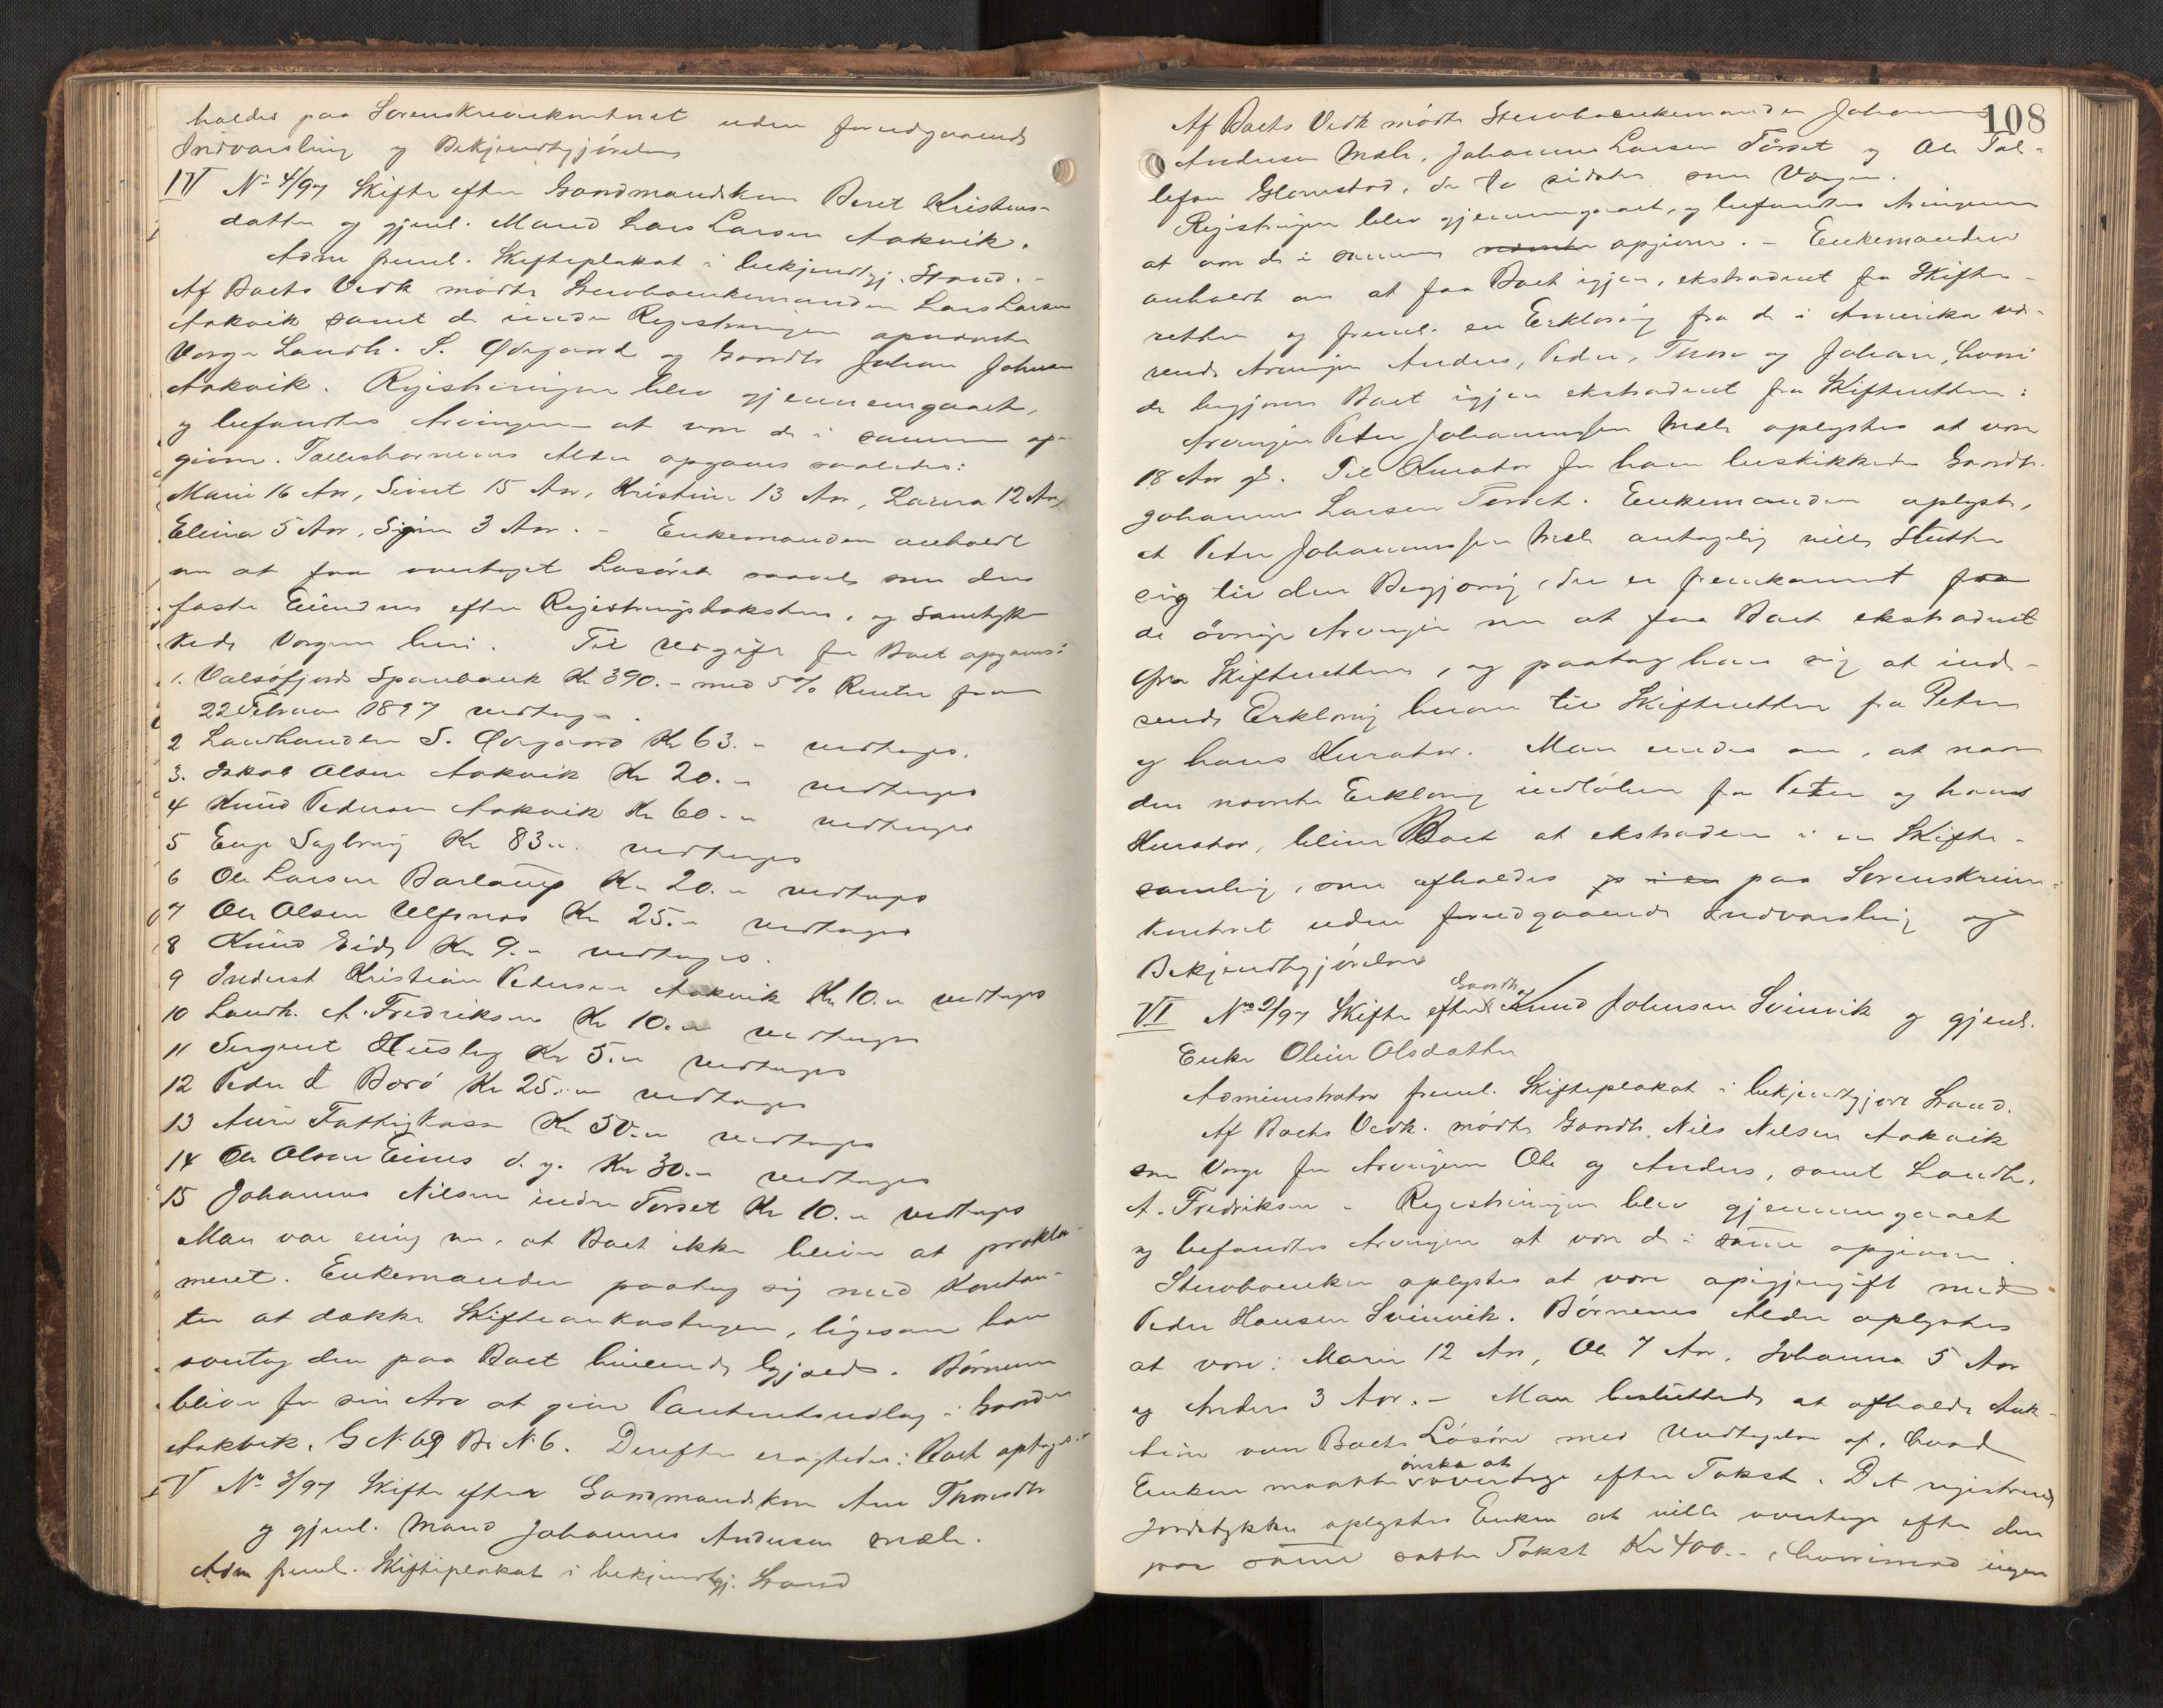 holdes paa Sorenskriverkontoret uden forudgaaende
Indvarsling og Bekjendtgjörelse
IV No 4/97 Skifte efter Gaardmandskone Beret Kristens-
datter og gjenl. Mand Lars Larsen Aakvik.
Adm freml. Skifteplakat i bekjendtgj. Stand. -
Af Boets Vedk mödte Stervboenkemanden Lars Larsen
Aakvik samt de under Registreringen opnævnte
Værger Landh. S. Ødegaard og Gaardbr Johan Johnsen
Aakvik. Registreringen blev gjennemgaaet,
og befandtes Arvingerne at være de i samme op-
givne. Fællesbørnenes Alder opgaves saaledes:
Marie 16 Aar, Sivert 15 Aar, Kristine 13 Aar, Larna 12 Aar,
Elina 5 Aar, Signe 3 Aar. - Enkemanden anholdt
om at faa overtaget Lösöret saavel som den
faste Eiendom efter Registreringstaksten, og samtyk-
kede Værgerne heri. Til Udgift for Boet opgaves:
1. Valsöfjords Sparebank Kr 390.- med 5% Renter fra
22 Februar 1897 vedtages.
2 Landhandler S. Ødegaard Kr 63. " vedtages.
3. Jakob Olsen Aakvik Kr 20. - vedtages
4 Knud Pedersen Aakvik Kr 60. - " vedtages
5 Enge Sagbrug Kr 83. " . vedtages
6 Ole Larsen Kr 20. " vedtages
7 Ole Olsen Ulfsnæs Kr 25. - vedtages
8 Knud Eide Kr 9. - vedtages.
9 Inderst Kristian Pedersen Aakvik Kr 10. " vedtages
10 Landh. A. Fredriksen Kr 10. " vedtages
11 Sergent Husby Kr 5. " vedtages
12 Peder Borö Kr 25. " vedtages
13 Aure Fattigkasse Kr 50. " vedtages
14 Ole Olsen Eines d. y. Kr 30. - vedtages
15 Johannes Nilsen indre Torset Kr 10. " vedtages
Man var enig om, at Boet ikke bliver at prokla-
meret. Enkemanden paatog sig med Kontan-
ter at dække Skifteomkostningen, ligesom han
overtog den paa Boet hvilende Gjæld. Börnene
bliver for sin Arv at give Panteretsudlæg i Gaarden
Aakvik, G No 69 Br No 6. Derefter eragtedes: Boet optages
V No 3/97 Skifte efter Gaardmandskone Ane Thoresdtr
og gjenl. Mand Johannes Andersen Mæle.
Adm freml. Skifteplakat i bekjendtgj. Stand
108
Af Boets Vedk mödte Stervboenkemanden Johannes
Andersen Mæle, Johannes Larsen Törset og Ole Tol-
lefsen Glamstad, de to sidste som Værger.
Registreringen blev gjennemgaaet, og befandtes Arvingerne
at være de i samme opgivne. - Enkemanden
anholdt om at faa Boet igjen, ekstraderet fra Skifte-
retten og freml. en Erklæring fra de i Amerika væ-
rende Arvinger Anders, Peder, Ture og Johan, hvori
de begjærer Boet igjen ekstraderet fra Skifteretten:
Arvingen Peter Johannessen Mæle oplystes at være
18 Aar gl. Til Kurator for ham beskikkedes Gaardbr.
Johannes Larsen Torset. Enkemanden oplyste,
at Peter Johannessen Mæle antagelig ville slutte
sig til den Begjæring, der er fremkommet fra
de övrige Arvinger om at faa Boet ekstraderet
fra Skifteretten, og paatog han sig at ind-
sende Erklæring herom til Skifteretten fra Peter
og hans Kurator. Man enedes om, at naar
den nævnte Erklæring indlöber fra Peter og hans
Kurator, bliver Boet at ekstradere i en Skifte-
samling, som afholdes paa Sorenskriver-
kontoret uden forudgaaende Indvarsling og
Bekjendtgjörelse
VI No 2/97 Skifte efter Gaardbr Knud Johnsen Svinvik og gjenl.
Enke Oline Olsdatter
Administrator freml. Skifteplakat i bekjendtgjort Stand.
Af Boets Vedk. mödte Gaardbr. Nils Nilsen Aakvik
som Værge for Arvingerne Ole og Anders, samt Landh.
A. Fredriksen. Registreringen blev gjennemgaaet
og befandtes Arvingerne at være de i samme opgivne.
Stervboenken oplystes at være opigjengift med
Peder Hansen Svinvik. Börnenes Alder oplystes
at være: Marie 12 Aar, Ole 7 Aar, Johanna 5 Aar
og Anders 3 Aar. - Man besluttede at afholde Auk-
tion over Boets Lösöre med Undtagelse af, hvad
Enken maatte önske at overtage efter Takst. Det registrerede
Jordstykke oplystes Enken at ville overtage efter den
paa samme satte Takst Kr 400. -, hvorimod ingen